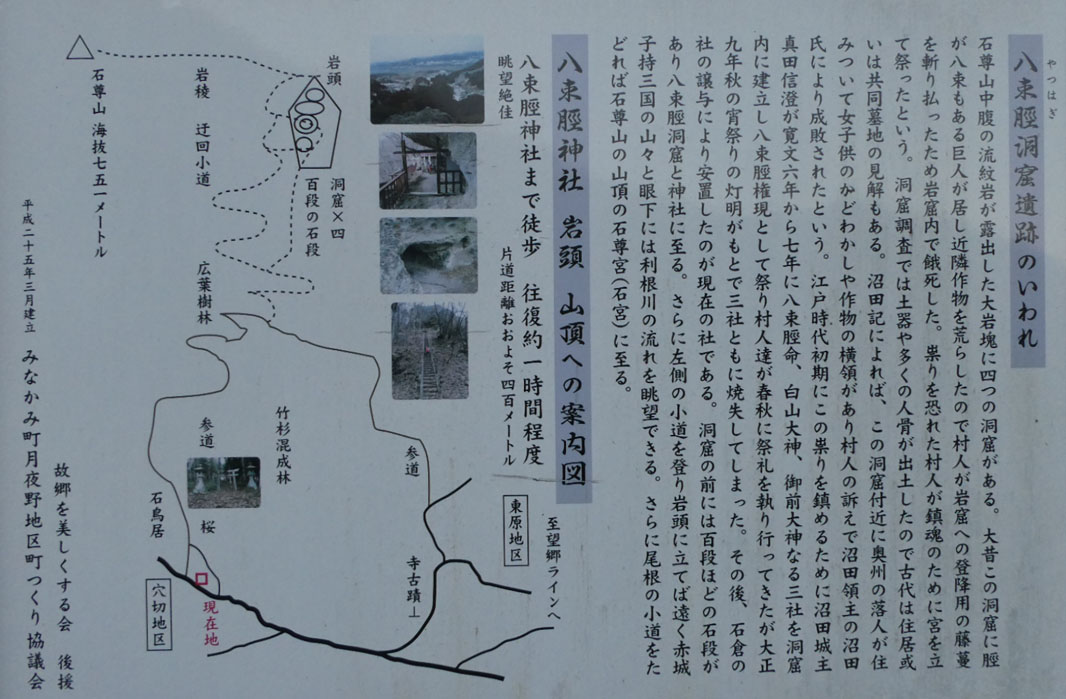 八束脛洞窟遺跡のいわれ
やつはぎ
石尊山中腹の流紋岩が露出した大岩塊に四つの洞窟がある。大昔この洞窟に脛
が八束もある巨人が居し近隣作物を荒らしたので村人が岩窟への登降用の藤蔓
を斬り払ったため岩窟内で餓死した。祟りを恐れた村人が鎮魂のために宮を立
て祭ったという。洞窟調査では土器や多くの人骨が出土したので古代は住居或
いは共同墓地の見解もある。沼田記によれば、この洞窟付近に奥州の落人が住
みついて女子供のかどわかしや作物の横領があり村人の訴えで沼田領主の沼田
氏により成敗されたという。江戸時代初期にこの祟りを鎮めるために沼田城主
真田信澄が寛文六年から七年に八束脛命、白山大神、御前大神なる三社を洞窟
内に建立し八束脛権現として祭り村人達が春秋に祭礼を執り行ってきたが大正
九年秋の宵祭りの灯明がもとで三社ともに焼失してしまった。その後、石倉の
社の譲与により安置したのが現在の社である。洞窟の前には百段ほどの石段が
あり八束脛洞窟と神社に至る。さらに左側の小道を登り岩頭に立てば遠く赤城
子持三国の山々と眼下には利根川の流れを眺望できる。さらに尾根の小道をた
どれば石尊山の山頂の石尊宮(石宮)に至る。
八束脛神社 岩頭 山頂への案内図
八束脛神社まで徒歩 往復約一時間程度
片道距離おおよそ四百メートル
眺望絶佳
岩頭
洞窟×四
百段の石段
岩稜 迂回小道
石尊山 海抜七五一メートル
広葉樹林
竹杉混成林
参道
参道
桜
石鳥居
現在地
穴切地区
寺古蹟
東原地区
至望郷ラインへ
平成二十五年三月建立
みなかみ町月夜野地区町づくり協議会
故郷を美しくする会 後援